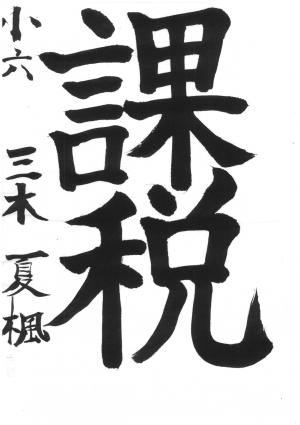 課税
小六 三木 夏楓